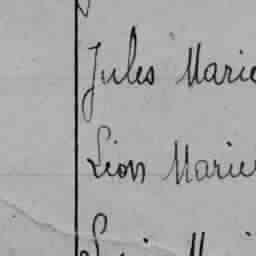 Jules Marie
Léon Marie